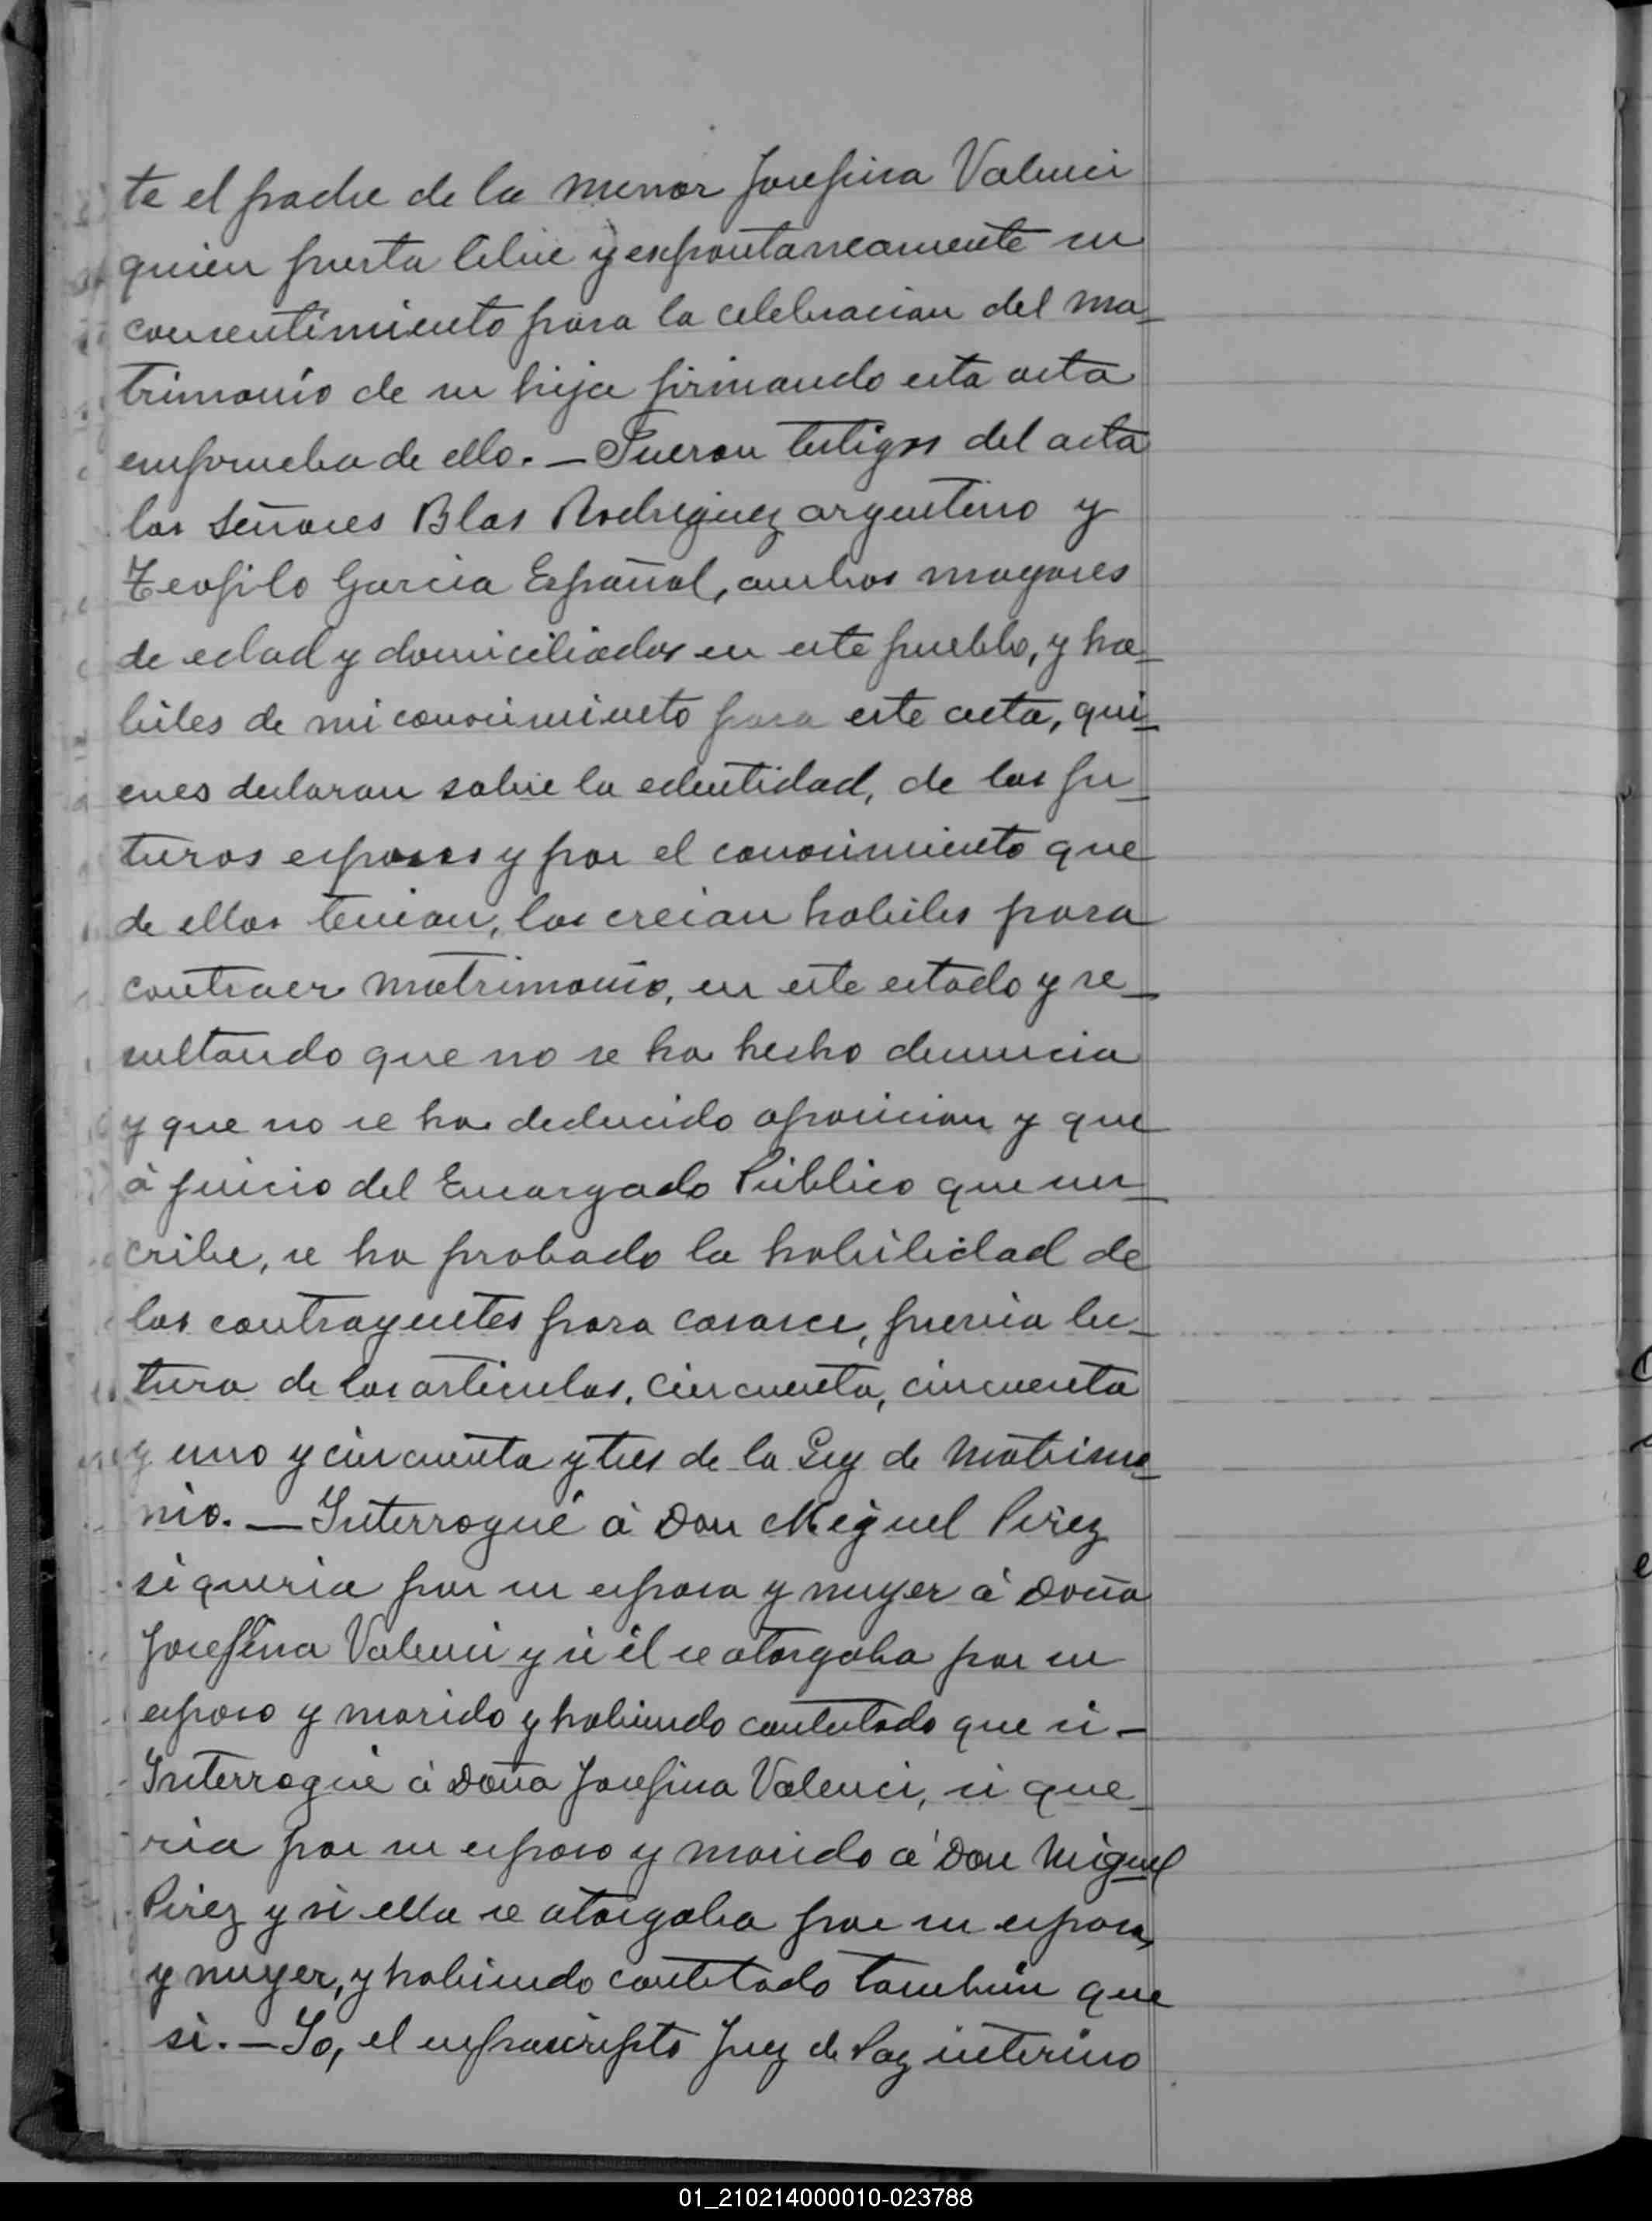 te el padre de la menor Josefina Valenci
quien presta libre y expontaneamente su
consentimiento para la celebracion del ma_
trimonio de su hija firmando esta acta
en prueba de ello. — Fueron testigos del acta
los Señores Blas Rodriguez argentino y
Teofilo Garcia Español, ambos mayores
de edad y domiciliados en este pueblo, y ha_
biles de mi conocimiento para este acta, qui_
enes declaran sobre la edentidad, de los fu_
turos esposos y por el conocimiento que
de ellos tenian, los creian habiles para
contraer matrimonio, en este estado y re_
sultando que no se ha hecho denuncia
y que no se ha deducido oposicion y que
á juicio del Encargado Público que sus_
cribe, se ha probado la habilidad de
los contrayentes para casarce, previa lec_
tura de los articulos, cincuenta, cincuenta
y uno y cincuenta y tres de la Ley de Matrimo_
nio. — Interrogué á Don Miguel Pérez
si queria por su esposa y muyer á Doña
Josefina Valenci y si él se otorgaba por su
esposo y marido y habiendo contestado que si —
Interrogué á Doña Josefina Valenci, si que_
ria por su esposo y marido á Don Miguel
Pérez y si ella se otorgaba por su esposa,
y muyer, y habiendo contestado tambien que
si. — Yo, el infrascripto Juez de Paz interino
01_210214000010-023788